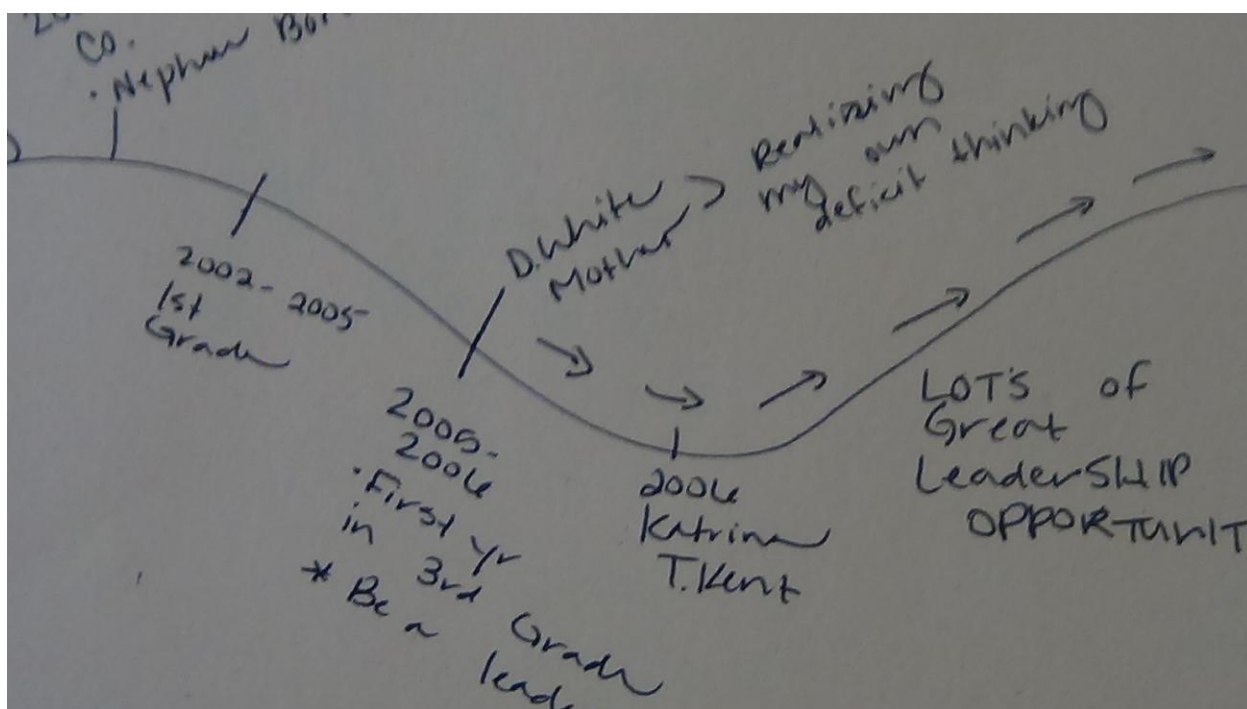 Co.
· Nephew Bor
2002 - 2005
1st
Grade
D. White
Mother >
Realizing
my own
deficit thinking
2005-
2006
· First yr
in 3rd Grade
* Be a lead
2006
Katrina
T. Kent
LOTS of
Great
LeaderSHIP
OPPORTUNIT